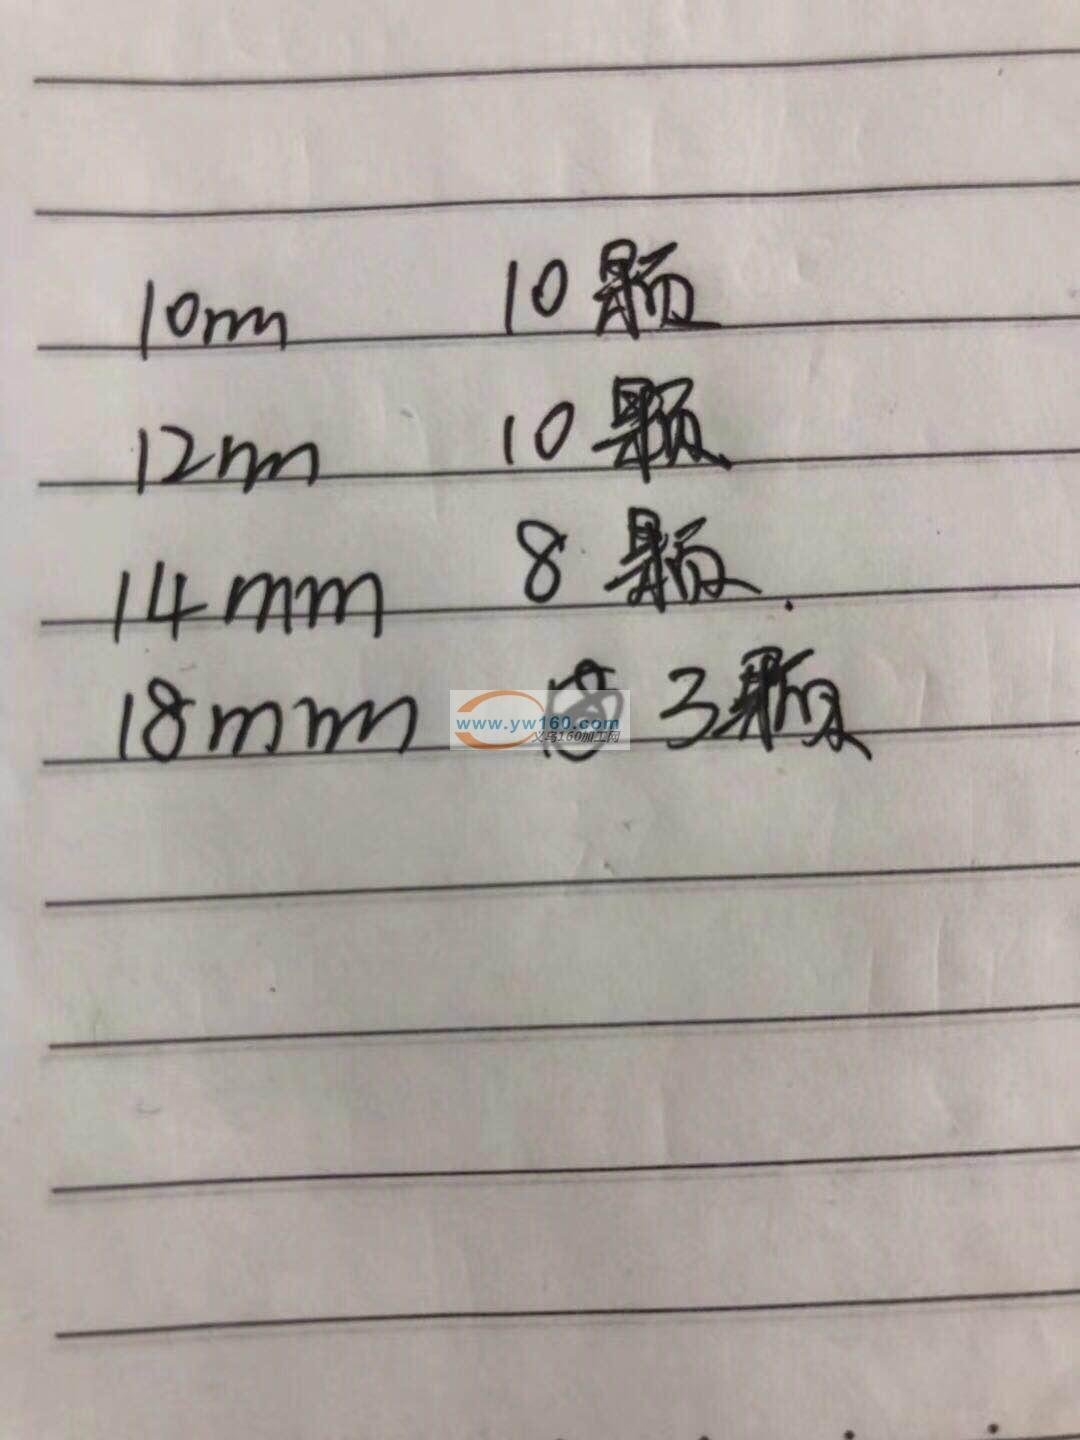 10mm 10颗
12mm 10颗
14mm 8颗.
18mm 3颗
www.yw160.com
义乌160加工网